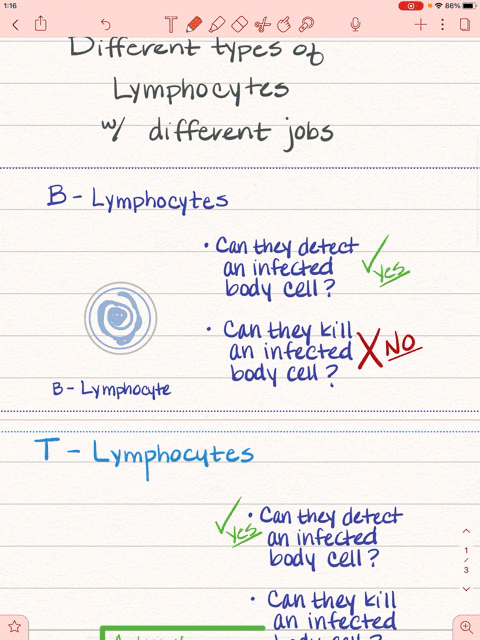 1:16
86%
Different types of
Lymphocytes
w/ different jobs
B - Lymphocytes
• Can they detect
an infected
body cell?
yes
• Can they kill
an infected
body cell?
NO
B - Lymphocyte
T - Lymphocytes
• Can they detect
an infected
body cell?
yes
• Can they kill
an infected
1
/
3